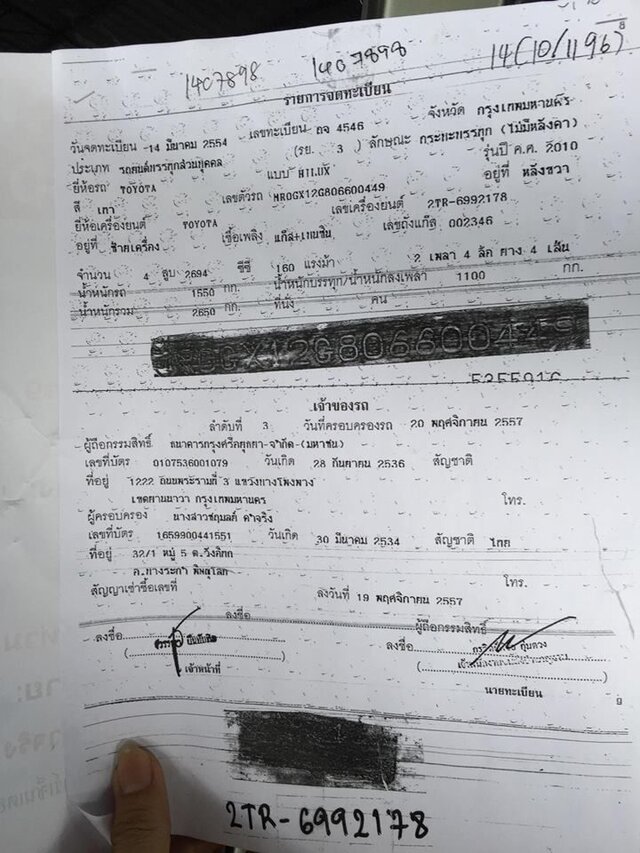 8
1407898 1407898 14(10/1196)
รายการจดทะเบียน
วันจดทะเบียน 14 มีนาคม 2554 เลขทะเบียน ถจ 4546 จังหวัด กรุงเทพมหานคร
ประเภท รถยนต์บรรทุกส่วนบุคคล (รย. 3 ) ลักษณะ กระบะบรรทุก (ไม่มีหลังคา)
ยี่ห้อรถ TOYOTA แบบ HILUX รุ่นปี ค.ศ. 2010
สี เทา เลขตัวรถ MROGX12G806600449 อยู่ที่ หลังขวา
ยี่ห้อเครื่องยนต์ TOYOTA เลขเครื่องยนต์ 2TR-6992178
อยู่ที่ ซ้ายเครื่อง เชื้อเพลิง แก๊ส+เบนซิน เลขถังแก๊ส 002346
จำนวน 4 สูบ 2694 ซีซี 160 แรงม้า 2 เพลา 4 ล้อ ยาง 4 เส้น
น้ำหนักรถ 1550 กก. น้ำหนักบรรทุก/น้ำหนักลงเพลา 1100 กก.
น้ำหนักรวม 2650 กก. ที่นั่ง คน
MROGX12G806600449
5255916
เจ้าของรถ
ลำดับที่ 3 วันที่ครอบครองรถ 20 พฤศจิกายน 2557
ผู้ถือกรรมสิทธิ์ ธนาคารกรุงศรีอยุธยา จำกัด (มหาชน)
เลขที่บัตร 0107536001079 วันเกิด 28 กันยายน 2536 สัญชาติ
ที่อยู่ 1222 ถนนพระรามที่ 3 แขวงบางโพงพาง
เขตยานนาวา กรุงเทพมหานคร โทร.
ผู้ครอบครอง นางสาวชฤมลย์ คำจริง
เลขที่บัตร 1659900441551 วันเกิด 30 มีนาคม 2534 สัญชาติ ไทย
ที่อยู่ 32/1 หมู่ 5 ต.วังพิกุล
อ.บางระกำ พิษณุโลก โทร.
สัญญาเช่าซื้อเลขที่ ลงวันที่ 19 พฤศจิกายน 2557
ลงชื่อ ผู้ถือกรรมสิทธิ์
ลงชื่อ ลงชื่อ
เจ้าหน้าที่ นายทะเบียน
9
2TR-6992178